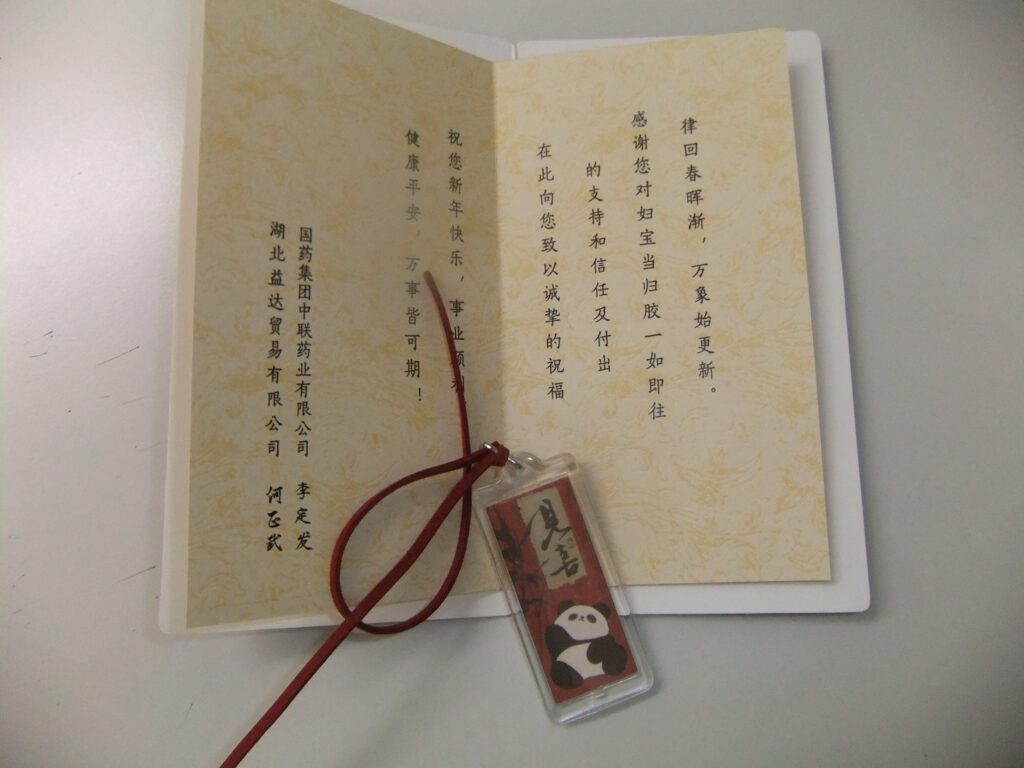 律回春晖渐，万象始更新。
感谢您对妇宝当归胶一如即往
的支持和信任及付出
在此向您致以诚挚的祝福
祝您新年快乐，事业顺利
健康平安，万事皆可期！
国药集团中联药业有限公司 李定发
湖北益达贸易有限公司 何正武
见喜